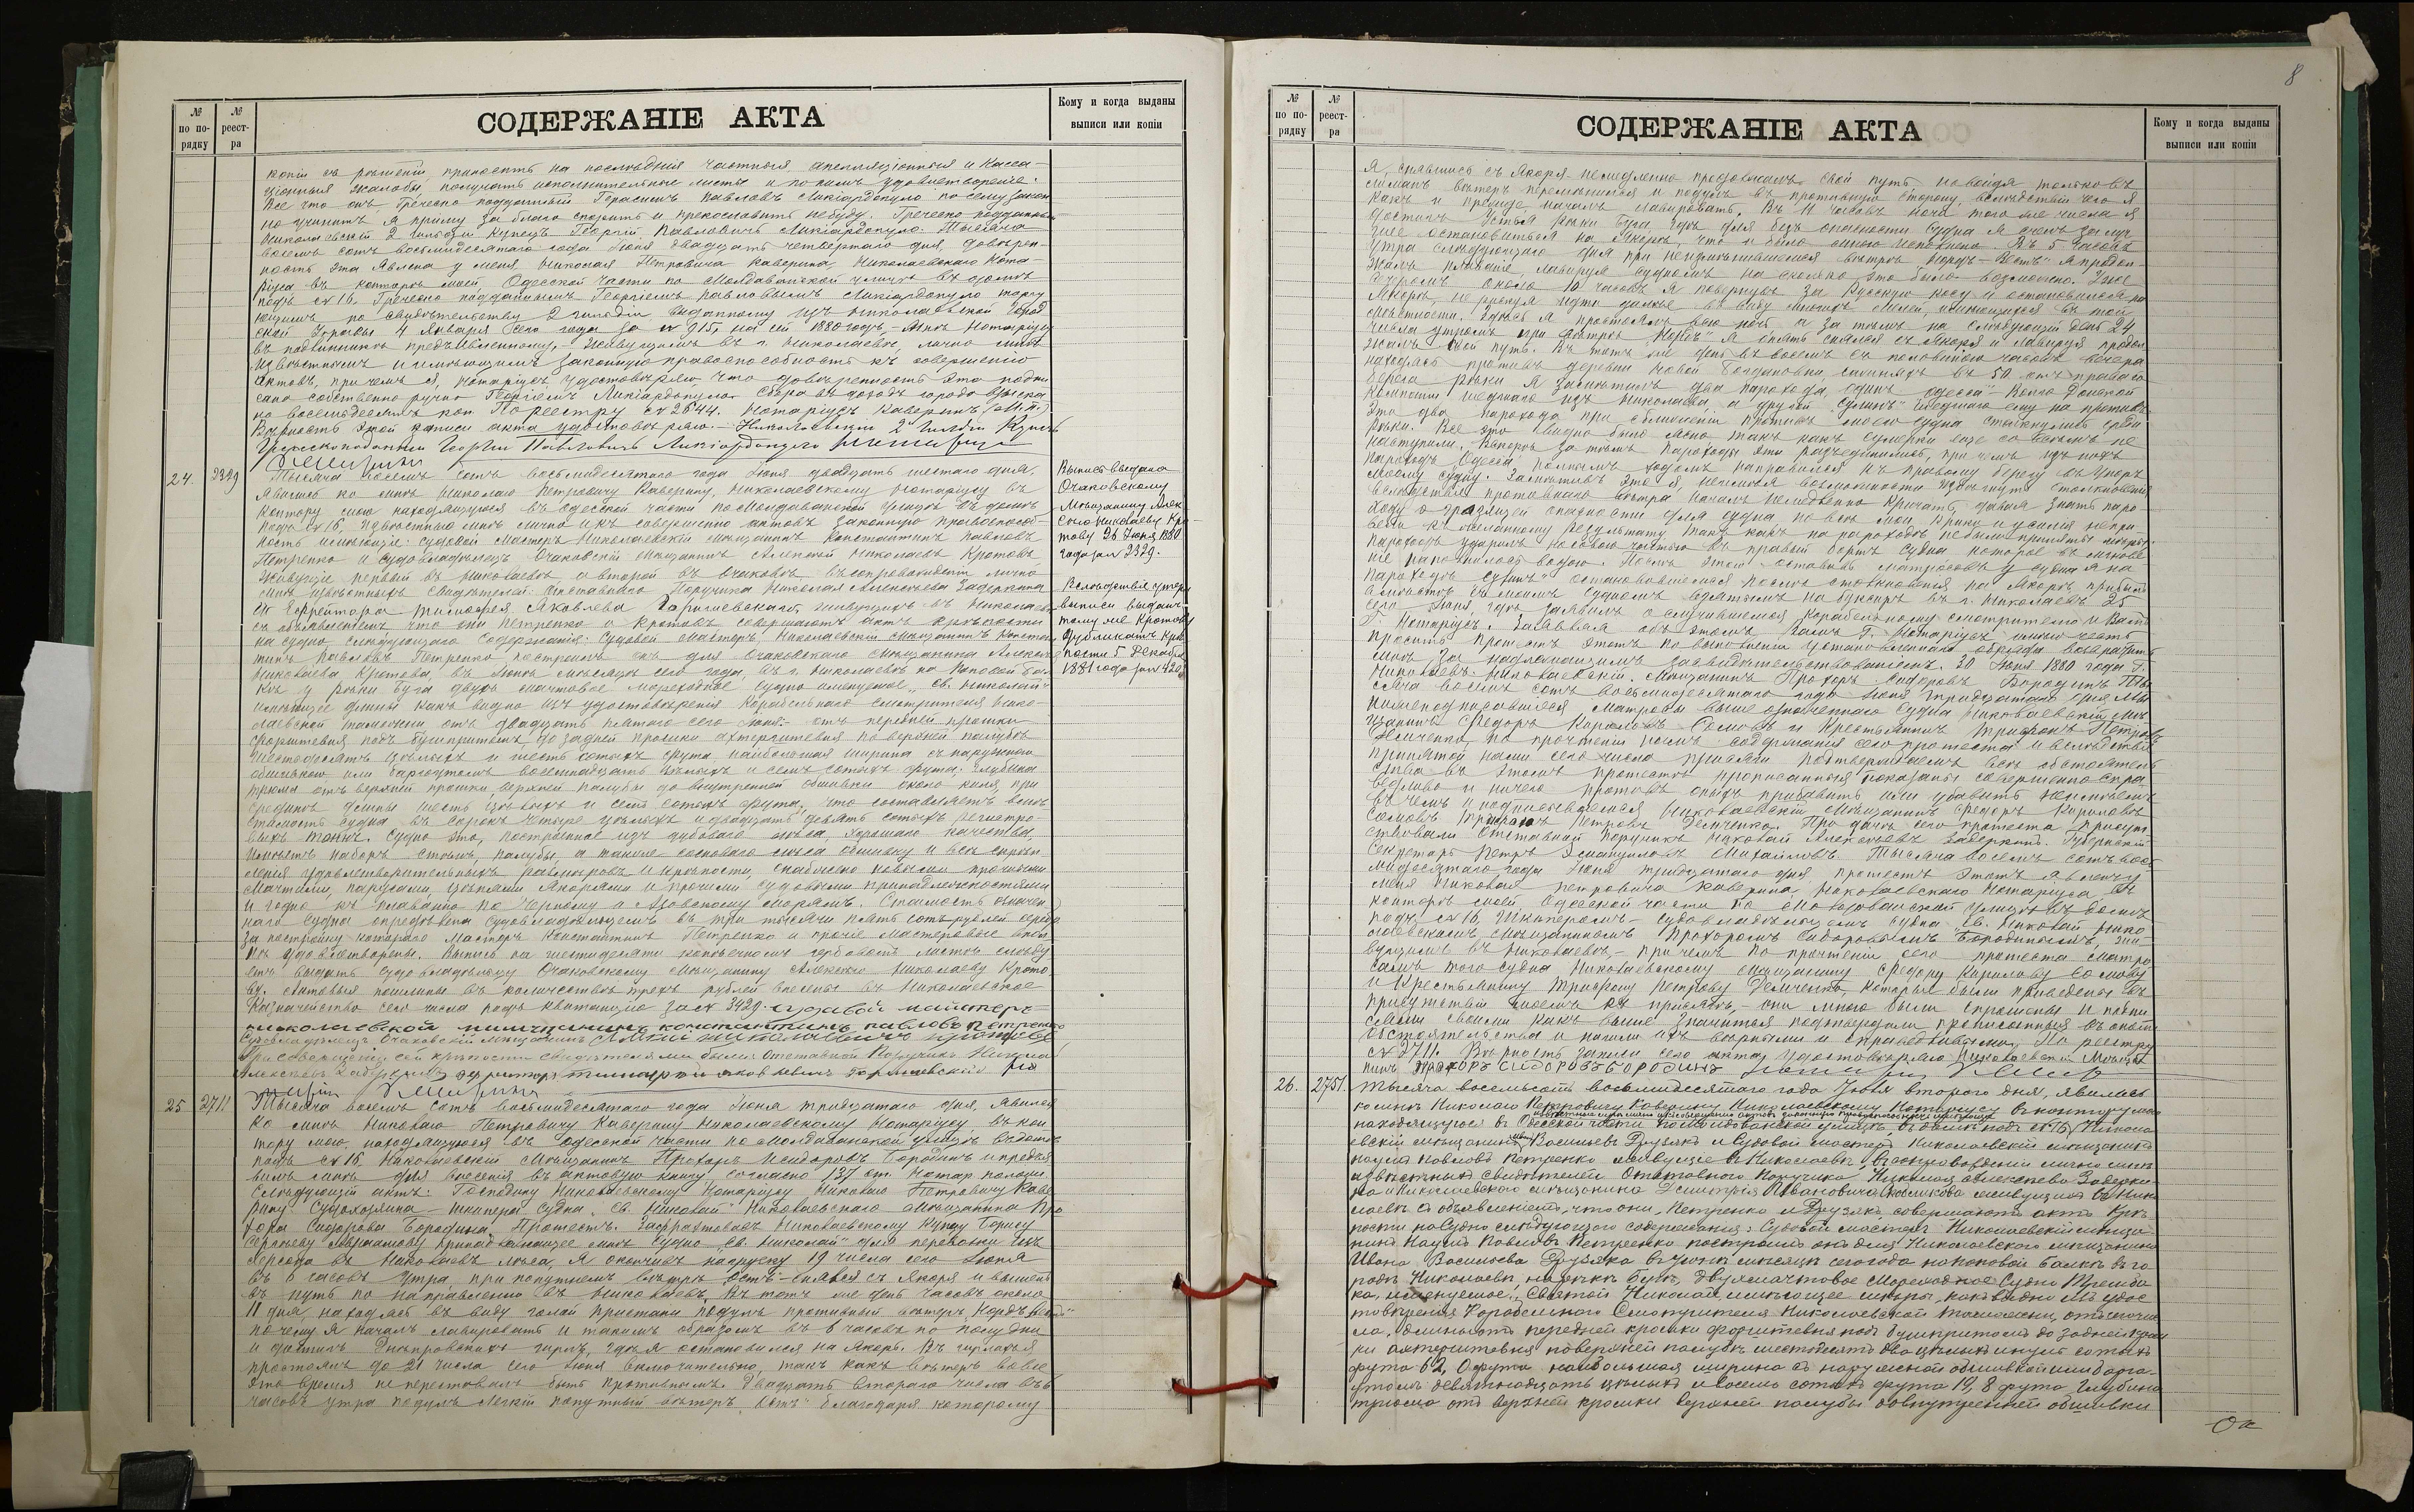 №
по по-
рядку
№
реест-
ра
СОДЕРЖАНІЕ АКТА
Кому и когда выданы
выписи или копіи
копіи съ рѣшеній приносить на послѣднія частныя, апелляціонныя и касса-
ціонныя жалобы, получать исполнительные листы и по нимъ удовлетвореніе.
Все что онъ Греческо подданный Герасимъ Павловъ Ликіардопуло по сему закон
но учинитъ я приму за благо спорить и прекословить небуду. Греческо подданный
Николаевскій 2 гильдіи купецъ Георгій Павловичъ Ликіардопуло. Тысяча
восемь сотъ восьмидесятаго года Іюня двадцать четвертаго дня, довѣрен-
ность эта явлена у меня, Николая Петровича Каверина, Николаевскаго Нота-
ріуса въ конторѣ моей, Одесской части по Молдаванской улицѣ въ домѣ
подъ № 16. Греческо подданнымъ Георгіемъ Павловымъ Ликіардопуло торгу
ющимъ по свидѣтельству 2 гильдіи, выданному изъ Николаевской Город
ской Управы 4 Января сего года за № 915, на сей 1880 годъ,- мнѣ Нотаріусу
въ подлинникѣ предъявленному, живущимъ въ г. Николаевѣ, лично мнѣ
извѣстнымъ и имѣющимъ законную правоспособность къ совершенію
актовъ, при чемъ я, Нотаріусъ, удостовѣряю, что довѣренность эта подпи
сана собственно ручно Георгіемъ Ликіардопуло. Сбора въ доходъ города взыска
но восемьдесятъ коп. По реестру № 2644. Нотаріусъ Каверинъ (М.П.)
Вѣрность этой записи акта удостовѣряю.- Николаевскій 2й гильдіи Купецъ
Грекоскоподаный Георгій Павловичъ Ликіардопуло
24.
2329
Тысяча восемь сотъ восьмидесятаго года Іюня двадцать шестаго дня,
явились ко мнѣ Николаю Петровичу Каверину, Николаевскому Нотаріусу въ
контору мою находящуюся въ Одесской части по Молдаванской улицѣ въ домѣ
подъ № 16, извѣстные мнѣ лично и къ совершенію актовъ законную правоспособ-
ность имѣющіе: судовой мастеръ Николаевскій мѣщанинъ Константинъ Павловъ
Петренко и судовладѣлецъ Очаковскій мѣщанинъ Алексѣй Николаевъ Кротовъ
живущіе первый въ Николаевѣ, а второй въ Очаковѣ, въ сопровожденіи лично
мнѣ извѣстныхъ свидѣтелей: Отставнаго Поручика Николая Алексѣева Задеркина
и Ефрейтора Тимофея Яковлева Горишевскаго, живущихъ въ Николаевѣ
съ объявленіемъ, что они Петренко и Кротовъ совершаютъ актъ крѣпости
на судно слѣдующаго содержанія: Судовой мастеръ, Николаевскій мѣщанинъ Констан
тинъ Павловъ Петренко построилъ онъ для Очаковскаго мѣщанина Алексѣя
Николаева Кротова, въ Іюнѣ мѣсяцѣ сего года, въ г. Николаевѣ на Поповой бал
кѣ у рѣки Буга двухъ мачтовое мореходное судно именуемое „Св. Николай“
имѣющее длины какъ видно изъ удостовѣренія Корабельнаго смотрителя Нико-
лаевской таможни отъ двадцать пятаго сего Іюня:- отъ передней кромки
форштевня подъ бушпритомъ, до задней кромки ахтерштевня по верхней палубѣ
шестьдесятъ цѣлыхъ и шесть сотыхъ фута, наибольшая ширина съ наружною
обшивкою или бархоутомъ восемнадцать цѣлыхъ и семь сотыхъ фута; глубина
трюма отъ верхней кромки верхней палубы до внутренней обшивки около киля, при
срединѣ длины шесть цѣлыхъ и семь сотыхъ фута, что составляетъ вмѣ
стимость судна въ сорокъ четыре цѣлыхъ и двадцать девять сотыхъ регистро-
выхъ тонны. Судно это, построенное изъ дубоваго лѣса, хорошаго качества
имѣетъ наборъ стѣнъ, палубы, а также сосноваго лѣса обшивку и всѣ скрѣп
ленія удовлетворительныхъ размѣровъ и крѣпости, снабжено новыми прочными
мачтами, парусами, цѣпями якорями и прочими судовыми принадлежностями
и годно къ плаванію по Черному и Азовскому морямъ. Стоимость означен
наго судна опредѣлена судовладѣльцемъ въ три тысячи пять сотъ рублей серебр
за постройку котораго мастеръ Константинъ Петренко и прочіе мастеровые впол
нѣ удовлетворены. Выпись на шестидесяти копѣечномъ гербовомъ листѣ слѣду
етъ выдать судовладѣльцу Очаковскому мѣщанину Алексѣю Николаеву Крото
ву. Актовыя пошлины въ количествѣ трехъ рублей внесены въ Николаевское
Казначейство сего числа подъ квитанцію за № 3429. судовой майстеръ
николаевской мищанинъ констатинъ павловъ петренко
Судовладѣлецъ Очаковскій мѣщанинъ Алексей николаевичъ кротовъ
При совершеніи сей крѣпости свидѣтелями были Отставной Поручикъ Николай
Алексѣевъ Задеркинъ Эфрейторъ тимофей яковлевичъ Горишевскій
Выпись выдана
Очаковскому
Мѣщанину Алек
сѣю Николаеву Кро-
тову 26 Іюня 1880
года за № 2329.
Вслѣдствіе утери
выписи выданъ
тому же Кротову
дубликатъ крѣ
пости 5 Декабря
1881 года за № 4220
25
2711
Тысяча восемь сотъ восьмидесятаго года Іюня тридцатаго дня, явился
ко мнѣ Николаю Петровичу Каверину Николаевскому Нотаріусу, въ кон
тору мою, находящуюся въ Одесской части по Молдаванской улицѣ въ домѣ
подъ № 16, Николаевскій Мѣщанинъ Прохоръ Исидоровъ Бородинъ и предъя
вилъ мнѣ для внесенія въ актовую книгу согласно 137 ст. Нотар. полож.
слѣдующій актъ: Господину Николаевскому Нотаріусу Николаю Петровичу Каве
рину Судохозяина - шкипера судна „Св. Николай“ Николаевскаго мѣщанина Про
хора Сидорова Бородина, Протестъ. Зафрахтовавъ Николаевскому купцу Борису
принадлежащее мнѣ судно „Св. Николай“ для перевозки изъ
Херсона въ Николаевъ лѣса, я окончивъ нагрузку 19 числа сего Іюня
въ 6 часовъ утра, при попутномъ вѣтрѣ Остъ снялся съ якоря и вышелъ
въ путь по направленію въ Николаевъ. Въ тотъ же день часовъ около
11 дня, находясь въ виду голой Пристани подулъ противный вѣтеръ „Нордъ Вестъ“
почему я началъ лавировать и такимъ образомъ въ 6 часовъ по полудни
и достигъ Днѣпровскихъ гирлъ, гдѣ я остановился на якорь. Въ гирлахъ я
простоялъ до 21 числа сего Іюня включительно, такъ какъ вѣтеръ во все
это время не переставалъ быть противнымъ. Двадцать втораго числа въ 6
часовъ утра подулъ легкій попутный вѣтеръ „Остъ“ благодаря которому
8
№
по по-
рядку
№
реест-
ра
СОДЕРЖАНІЕ АКТА
Кому и когда выданы
выписи или копіи
Я, снявшись съ якоря немедленно продолжалъ свой путь но войдя только въ
лиманъ вѣтеръ перемѣнился и подулъ въ противную сторону, вслѣдствіи чего я
какъ и прежде началъ лавировать. Въ 11 часовъ ночи того же числа я
достигъ устья рѣки Буга, гдѣ для безъ опасности судна я счелъ за луч
шее остановиться на якорь, что и было мною исполнено. Въ 5 часовъ
утра слѣдующаго дня при неизмѣнившемся вѣтрѣ „Нордъ-Вестъ“ я продол
жалъ плаваніе, лавируя судномъ на сколько это было возможно. Уже
утромъ около 10 часовъ я повернулъ за Русскую косу и остановился на
якорь, не рискуя идти далѣе въ виду многихъ мелей, имѣющихся въ той
мѣстности. Здѣсь я простоялъ всю ночь а за тѣмъ на слѣдующій день 24
числа утромъ при вѣтрѣ „Нордъ“ я опять снялся съ якоря и лавируя продол
жалъ свой путь. Въ тотъ же день въ восемь съ половиною часовъ вечера
находясь противъ деревни Новой Богдановки, саженяхъ въ 50 отъ праваго
берега рѣки я замѣтилъ два парохода, одинъ „Одесса“ Волго Донской
компаніи шедшаго изъ Николаева а другой „Сулинъ“ шедшаго ему на противъ
Эти два парохода при сближеніи противъ моего судна столкнулись среди
рѣки. Все это видно было ясно такъ какъ сумерки еще совсѣмъ не
наступили. Вскорѣ за тѣмъ пароходы эти разъединились, при чемъ изъ нихъ
пароходъ „Одесса“ полнымъ ходомъ направился къ правому берегу въ упоръ
моему судну. Замѣтивъ это я, неимѣя возможности избѣгнуть столкновенія
вслѣдствіе противнаго вѣтра началъ немедленно кричать, давая знать паро-
ходу о грозящей опасности для судна но всѣ мои крики и усилія непри-
вели къ желанному результату такъ какъ на пароходѣ небыли приняты мѣры.
Пароходъ ударилъ носовою частью въ правый бортъ судна которое въ мгнове
ніе наполнилось водою. Послѣ этой оставивъ матросовъ у судна я на
пароходѣ „Сулинъ“ остановившемся послѣ столкновенія на якорь прибылъ
вмѣстѣ съ моимъ судномъ взятымъ на буксиръ въ г. Николаевъ 25
сего Іюня, гдѣ заявилъ о случившемся корабельному смотрителю и Вамъ
Г. Нотаріусъ. Заявляя объ этомъ Вамъ Г. Нотаріусъ имѣю честь
просить протестъ этотъ по выполненіи установленнаго обряда возвратить
мнѣ за надлежащимъ засвидѣтельствованіемъ. 30 Іюня 1880 года г.
Николаевъ. Николаевскій мѣщанинъ Прохоръ Сидоровъ Бородинъ. Ты
сяча восемь сотъ восьмидесятаго года Іюня тридцатаго дня, мы
нижеподписавшіеся, матросы выше означеннаго судна Николаевскій мѣ
щанинъ Федоръ Кириловъ Сомовъ и Крестьянинъ Трифонъ Петровъ
Демченко, по прочтеніи намъ содержанія сего протеста и вслѣдствіи
принятой нами сего числа присяги подтверждаемъ всѣ обстоятель
ства въ этомъ протестѣ прописанныя показаны совершенно спра
ведливо и ничего противъ онаго прибавить или убавить неимѣемъ
въ чемъ и подписываемся Николаевскій мѣщанинъ Федоръ Кириловъ
Сомовъ, Трифонъ Петровъ Демченко. При дачѣ сего протеста присут
ствовали Отставной Поручикъ Николай Алексѣевъ Задеркинъ. Губернскій
Секретарь Петръ Эммануиловъ Михайловъ. Тысяча восемь сотъ вось
мидесятаго года Іюня тридцатаго дня, протестъ этотъ явленъ у
меня Николая Петровича Каверина, Николаевскаго Нотаріуса, въ
конторѣ моей, Одесской части по Молдаванской улицѣ въ домѣ
подъ № 16, Шкиперомъ - судовладѣльцемъ судна „Св. Николай“ Нико
лаевскимъ мѣщаниномъ Прохоромъ Сидоровымъ Бородинымъ, жи-
вущимъ въ Николаевѣ, - при чемъ по прочтеніи сего протеста матро
самъ того судна Николаевскому мѣщанину Федору Кирилову Сомову
и Крестьянину Трифону Петрову Демченко, которыя были приведены въ
присутствіи моемъ къ присягѣ, - они мною были спрошены и подпи
сями своими какъ выше значится подтвердили прописанныя въ ономъ
обстоятельства и нашли ихъ вѣрными и справедливыми. По реестру
№ 2711. Вѣрность записи сего акта удостовѣряю Николаевскій Мѣща
нинъ ПРОХОРЪ СИДОРОВЪ БОРОДИНЪ
26.
2751.
Тысяча восемьсотъ восьмидесятаго года Іюля втораго дня, явились
ко мнѣ Николаю Петровичу Каверину Николаевскому Нотаріусу въ контору мою
извѣстные мнѣ лично и къ совершенію актовъ законную правоспособность имѣющіе
находящуюся въ Одесской части по Молдаванской улицѣ въ домѣ подъ № 16, Никола
евскій мѣщанинъ Иванъ Васильевъ Друзякъ и Судовой мастеръ Николаевскій мѣщанинъ
Наумъ Павловъ Петренко живущіе въ Николаевѣ, въ сопровожденіи лично мнѣ
извѣстныхъ свидѣтелей Отставнаго Поручика Николая Алексѣева Задерки-
на и Николаевскаго мѣщанина Дмитрія Ивановича живущихъ въ Нико
лаевѣ съ объявленіемъ, что они, Петренко и Друзякъ совершаютъ актъ крѣ-
пости на судно слѣдующаго содержанія: Судовой мастеръ Николаевскій мѣща-
нинъ Наумъ Павловъ Петренко построилъ онъ для Николаевскаго мѣщанина
Ивана Васильева Друзяка въ Іюнѣ мѣсяцѣ сего года на Поповой балкѣ въ го-
родѣ Николаевѣ, на рѣкѣ Бугѣ, двухмачтовое Мореходное Судно Тремба
ка, именуемое „Святой Николай, имѣющее мѣры, какъ видно изъ удос
товѣренія Корабельнаго Смотрителя Николаевской таможни, отъ сего чи
сла, длины отъ передней кромки форштевня подъ бушпритомъ до задней кром
ки ахтерштевня по верхней палубѣ шестьдесятъ два цѣлыхъ и нуль сотыхъ
фута 62,0 фута, наибольшая ширина съ наружной обшивкой или барха-
утомъ девятнадцать цѣлыхъ и восемь сотыхъ фута 19,8 фута. Глубина
трюма отъ верхней кромки верхней палубы до внутренней обшивки